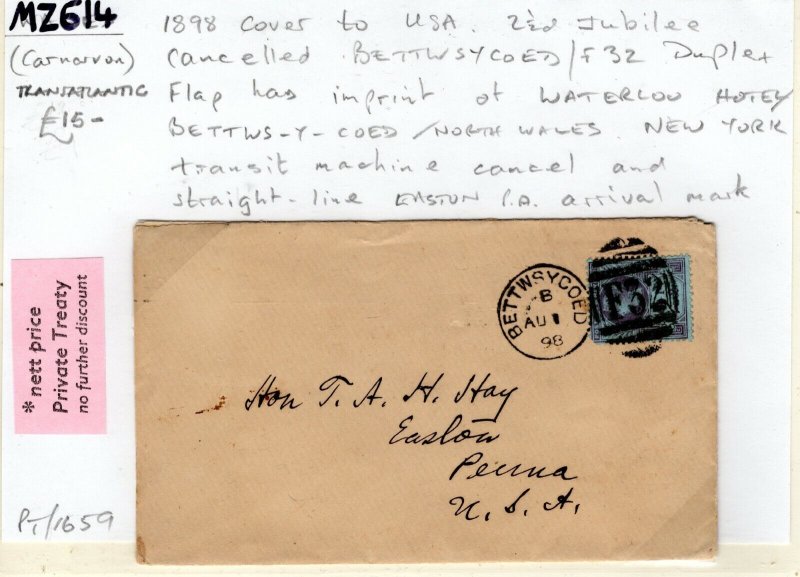 MZ614
(Carnarvon)
TRANSATLANTIC
£15-
1898 cover to USA. 2½d Jubilee
cancelled BETTWSYCOED/F32 Duplex
Flap has imprint of WATERLOO HOTEL/
BETTWS-Y-COED/NORTH WALES. NEW YORK
transit machine cancel and
straight-line EASTON P.A. arrival mark
* nett price
Private Treaty
no further discount
BETTWSYCOED
B
AU 1
98
F32
Hon T. A. H. Hay
Easton
Penna
U. S. A.
PT/1659